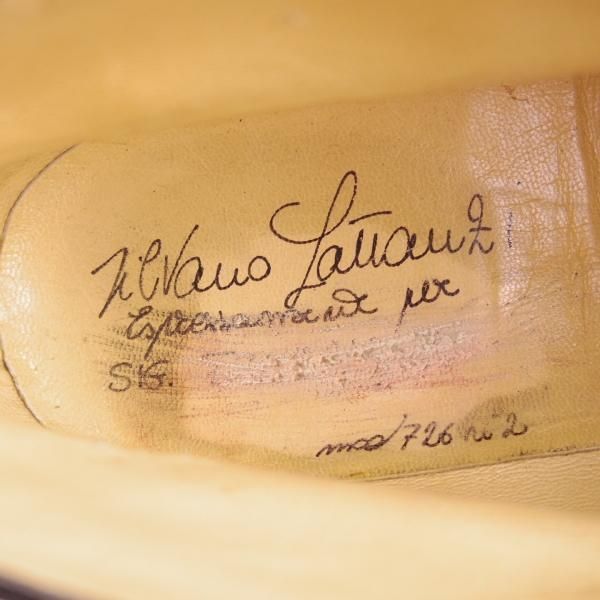 Silvano Lattanzi
Espressamente per
SIG.
mod 726 ni 2